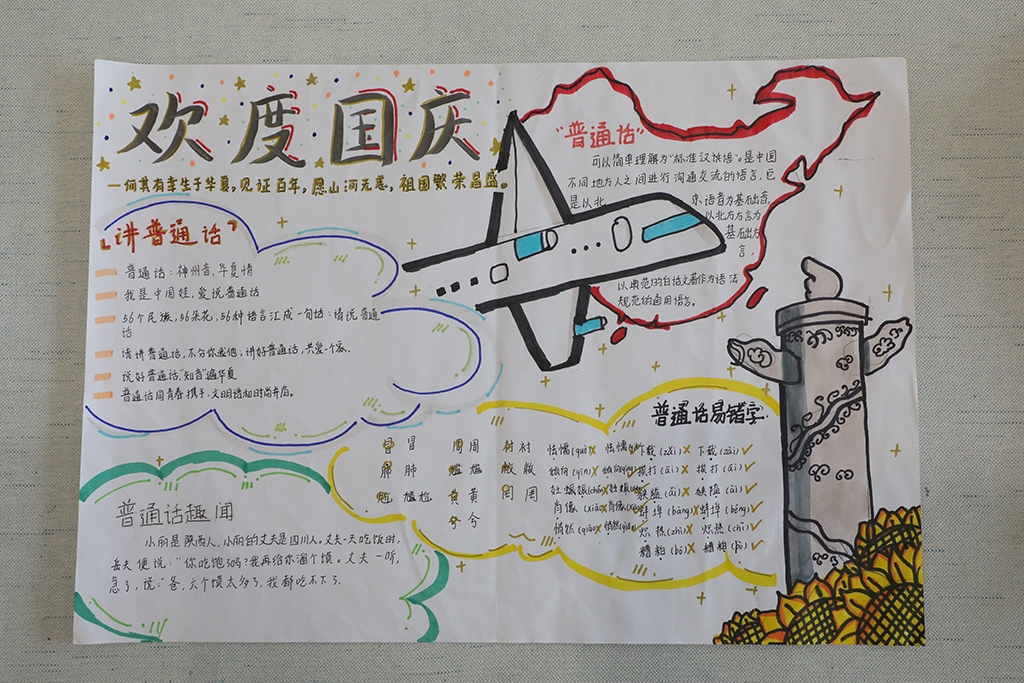 欢度国庆
一何其有幸生于华夏,见证百年,愿山河无恙,祖国繁荣昌盛。
"讲普通话"
普通话:神州音,华夏情
我是中国娃,爱说普通话
56个民族,56朵花,56种语言汇成一句话:请说普通
话
请讲普通话,不分你我他;讲好普通话,共爱一个家.
说好普通话,"知音"遍华夏
普通话同青春携手,文明语和时尚并肩。
"普通话"
可以简单理解为"标准汉族语"。是中国
不同地方人之间进行沟通交流的语言,它
是以北 京语音为基础音,
以北方方言为
基础方
言,
以典范的白话文著作为语法
规范的通用语言。
普通话易错字
冒 冒 周周 村村
肺 肺 敝 敝
尴尬 黄 黄 罔 罔
兮 兮
怯懦(què)X
倾向(qǐn)X
肖像(xiāo)X
悄然(qiāo)X
下载(zǎi)X 下载(zài)✓
挨打(āi)X 挨打(ái)✓
狭隘(ǎi)X
蚌埠(bàng)X 蚌埠(bèng)✓
炽热(zhì)X 炽热(chì)✓
糟粕(bó)X 糟粕(pò)✓
普通话趣闻
小丽是陕西人,小丽的丈夫是四川人,丈夫一天吃饭时,
岳父便说:"你吃饱了吗?我再给你溜个馍,丈夫一听,
急了,说:"爸,六个馍太多了,我都吃不下了.